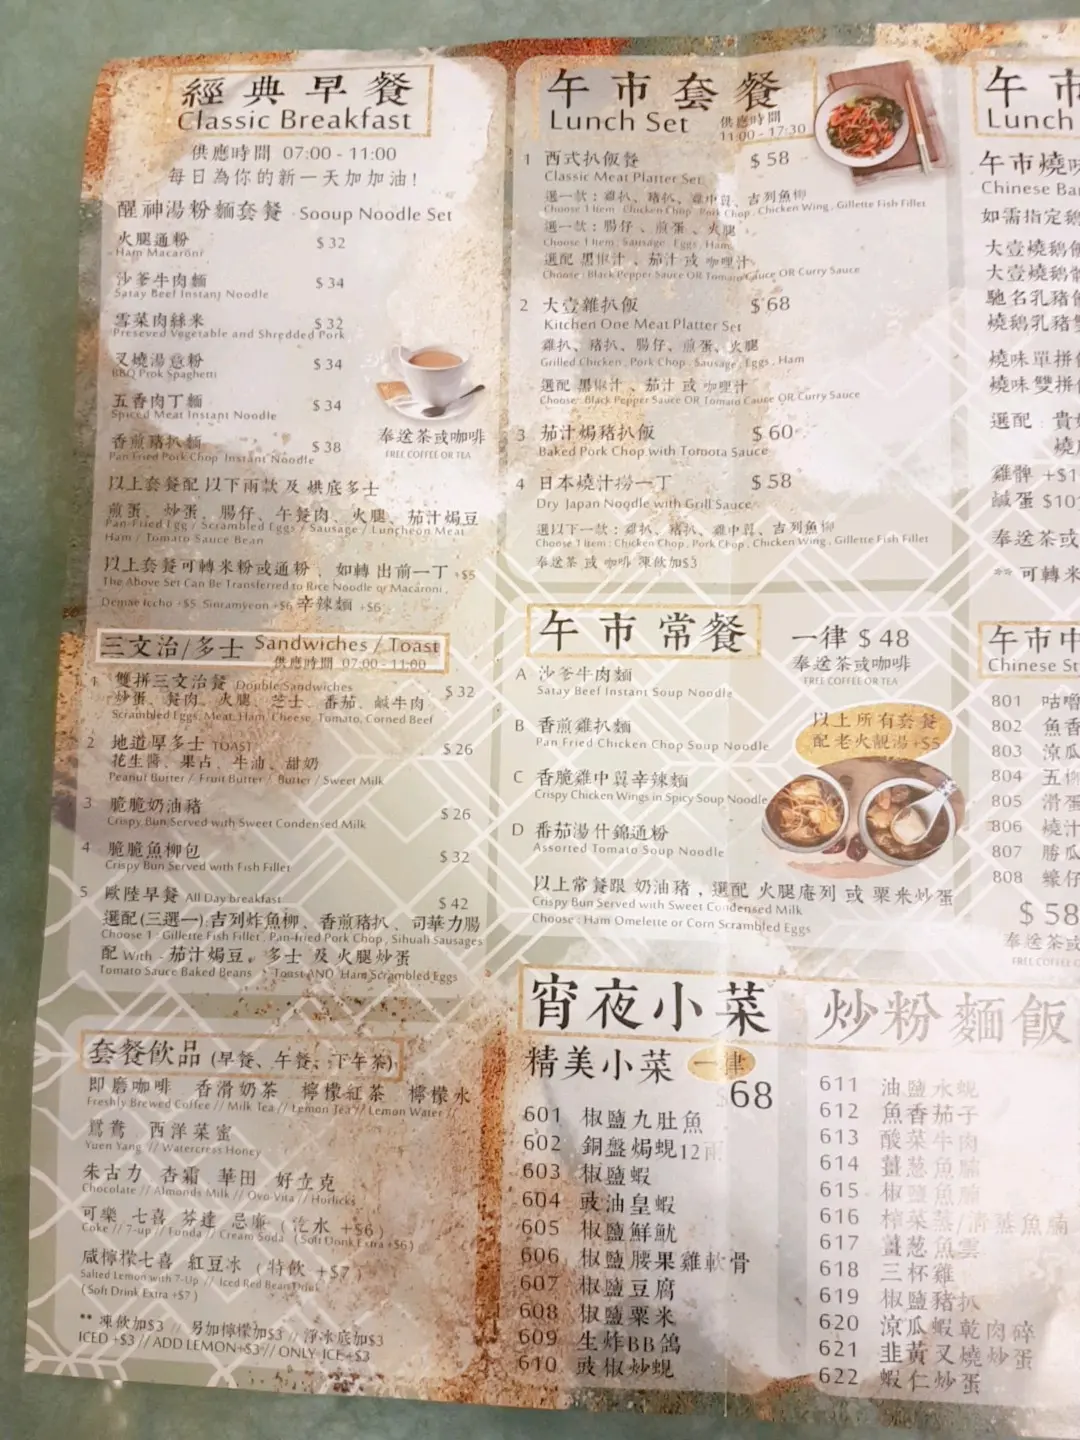 經典早餐
Classic Breakfast
供應時間 07:00 - 11:00
每日為你的新一天加加油!
醒神湯粉麵套餐 Sooup Noodle Set
火腿通粉 $ 32
Ham Macaroni
沙爹牛肉麵 $ 34
Satay Beef Instant Noodle
雪菜肉絲米 $ 32
Preseved Vegetable and Shredded Pork
叉燒湯意粉 $ 34
BBQ Prok Spaghetti
五香肉丁麵 $ 34
Spiced Meat Instant Noodle
香煎豬扒麵 $ 38
Pan Fried Pork Chop Instant Noodle
奉送茶或咖啡
FREE COFFEE OR TEA
以上套餐配以下兩款及烘底多士
煎蛋、炒蛋、腸仔、午餐肉、火腿、茄汁焗豆
Pan-Fried Egg / Scrambled Eggs / Sausage / Luncheon Meat
Ham / Tomato Sauce Bean
以上套餐可轉米粉或通粉、如轉出前一丁 +$5
The Above Set Can Be Transferred to Rice Noodle or Macaroni ,
Demae Iccho +$5 Sinramyeon +$6 辛辣麵 +$6
三文治/多士 Sandwiches / Toast
供應時間 07:00 - 11:00
1 雙拼三文治餐 Double Sandwiches $ 32
炒蛋、餐肉、火腿、芝士、番茄、鹹牛肉
Scrambled Eggs, Meat, Ham, Cheese, Tomato, Corned Beef
2 地道厚多士 TOAST $ 26
花生醬、果占、牛油、甜奶
Peanut Butter / Fruit Butter / Butter / Sweet Milk
3 脆脆奶油豬 $ 26
Crispy Bun Served with Sweet Condensed Milk
4 脆脆魚柳包 $ 32
Crispy Bun Served with Fish Fillet
5 歐陸早餐 All Day breakfast $ 42
選配(三選一):吉列炸魚柳、香煎豬扒、司華力腸
Choose 1 : Gillette Fish Fillet , Pan-fried Pork Chop , Sihuali Sausages
配 With - 茄汁焗豆, 多士 及 火腿炒蛋
Tomato Sauce Baked Beans , Toast AND Ham Scrambled Eggs
套餐飲品 (早餐、午餐、下午茶)
即磨咖啡 香滑奶茶 檸檬紅茶 檸檬水
Freshly Brewed Coffee // Milk Tea // Lemon Tea // Lemon Water //
鴛鴦 西洋菜蜜
Yuen Yang // Watercress Honey
朱古力 杏霜 華田 好立克
Chocolate // Almonds Milk // Ovo Vita // Horlicks
可樂 七喜 芬達 忌廉 (汽水 +$6)
Coke // 7-up // Fonda // Cream Soda (Soft Donk Extra +$6)
咸檸檬七喜 紅豆冰 (特飲 +$7)
Salted Lemon with 7-Up // Iced Red Bean Drink
(Soft Drink Extra +$7 )
** 凍飲加$3 // 另加檸檬加$3 // 淨冰底加$3
ICED +$3 // ADD LEMON+$3 // ONLY ICE +$3
午市套餐
Lunch Set
供應時間
11:00 - 17:30
1 西式扒飯餐 $ 58
Classic Meat Platter Set
選一款：雞扒、豬扒、雞中翼、吉列魚柳
Choose 1 Item : Chicken Chop , Pork Chop , Chicken Wing , Gillette Fish Fillet
選一款：腸仔、煎蛋、火腿
Choose 1 Item : Sausage , Eggs , Ham
選配 黑椒汁、茄汁 或 咖哩汁
Choose : Black Pepper Sauce OR Tomato Cauce OR Curry Sauce
2 大壹雜扒飯 $ 68
Kitchen One Meat Platter Set
雞扒、豬扒、腸仔、煎蛋、火腿
Grilled Chicken , Pork Chop , Sausage , Eggs , Ham
選配 黑椒汁、茄汁 或 咖哩汁
Choose: Black Pepper Sauce OR Tomato Cauce OR Curry Sauce
3 茄汁焗豬扒飯 $ 60
Baked Pork Chop with Tomota Sauce
4 日本燒汁撈一丁 $ 58
Dry Japan Noodle with Grill Sauce
選以下一款：雞扒、豬扒、雞中翼、吉列魚柳
Choose 1 Item : Chicken Chop , Pork Chop , Chicken Wing , Gillette Fish Fillet
奉送茶 或 咖啡 凍飲加$3
午市常餐
一律 $ 48
奉送茶或咖啡
FREE COFFEE OR TEA
A 沙爹牛肉麵
Satay Beef Instant Soup Noodle
B 香煎雞扒麵
Pan Fried Chicken Chop Soup Noodle
C 香脆雞中翼辛辣麵
Crispy Chicken Wings in Spicy Soup Noodle
D 番茄湯什錦通粉
Assorted Tomato Soup Noodle
以上所有套餐
配老火靚湯+$5
以上常餐跟 奶油豬，選配 火腿庵列 或 粟米炒蛋
Crispy Bun Served with Sweet Condensed Milk
Choose : Ham Omelette or Corn Scrambled Eggs
宵夜小菜
精美小菜 一律
$68
601 椒鹽九肚魚
602 銅盤焗蜆12兩
603 椒鹽蝦
604 豉油皇蝦
605 椒鹽鮮魷
606 椒鹽腰果雞軟骨
607 椒鹽豆腐
608 椒鹽粟米
609 生炸BB鴿
610 豉椒炒蜆
炒粉麵飯
611 油鹽水蜆
612 魚香茄子
613 酸菜牛肉
614 薑葱魚腩
615 椒鹽魚腩
616 榨菜蒸/清蒸魚腩
617 薑葱魚雲
618 三杯雞
619 椒鹽豬扒
620 涼瓜蝦乾肉碎
621 韭黃叉燒炒蛋
622 蝦仁炒蛋
午市
Lunch
午市燒味
Chinese Ba
如需指定鵝
大壹燒鵝
大壹燒鵝
馳名乳豬
燒鵝乳豬
燒味單拼
燒味雙拼
選配
雞髀 +$1
鹹蛋 $10
奉送茶或
** 可轉米
午市中
Chinese St
801 咕嚕
802 魚香
803 涼瓜
804 五柳
805 滑蛋
806 燒汁
807 勝瓜
808 蠔仔
$ 58
奉送茶或
FREE COFFEE